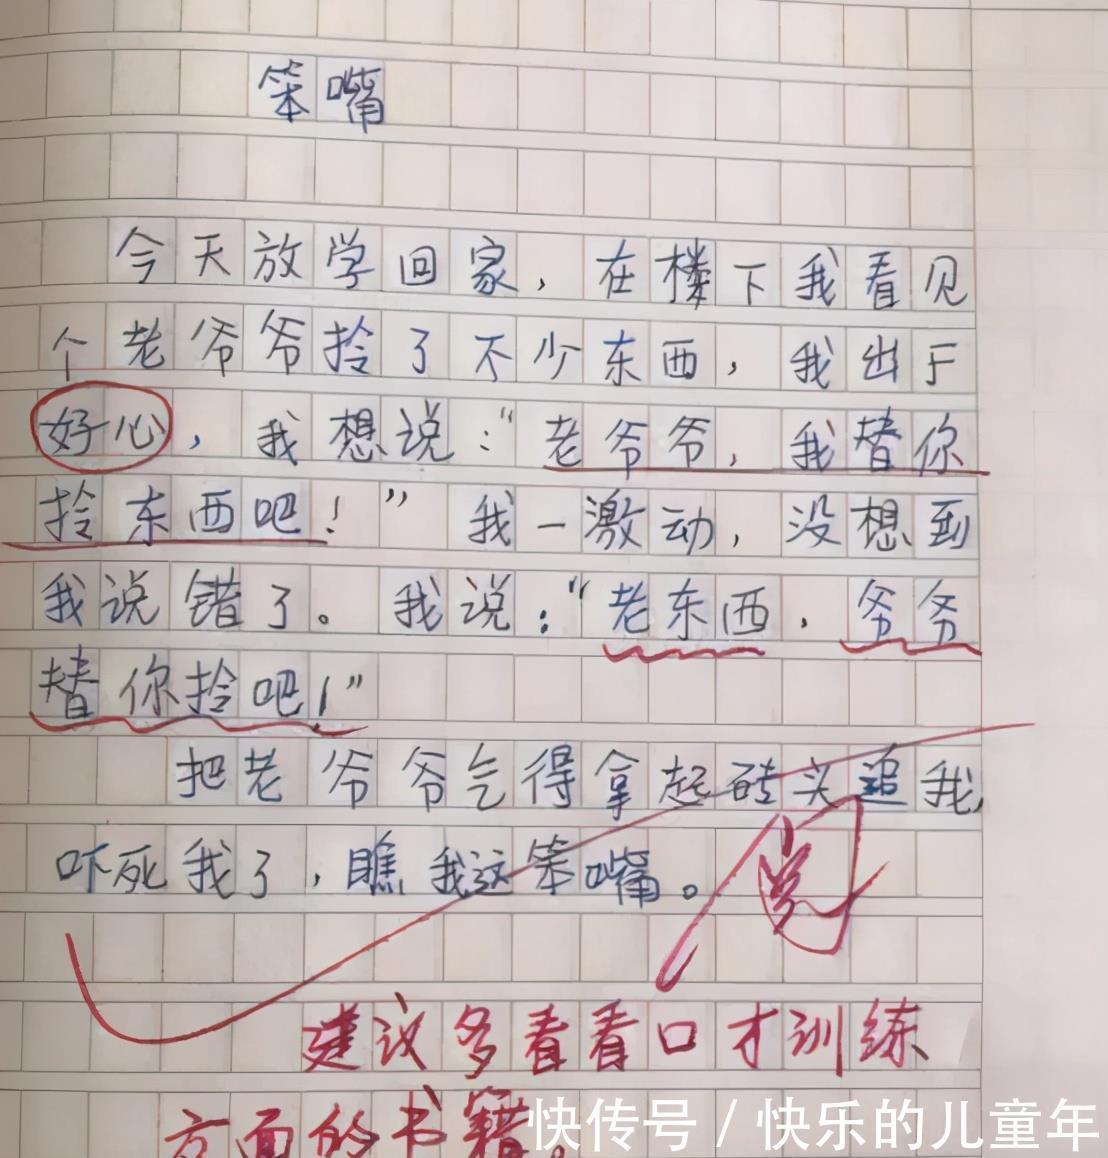 笨嘴
今天放学回家，在楼下我看见
个老爷爷拎了不少东西，我出于
好心，我想说：“老爷爷，我替你
拎东西吧！”我一激动，没想到
我说错了。我说：“老东西，爷爷
替你拎吧！”
把老爷爷气得拿起砖头追我，
吓死我了，瞧我这笨嘴。
建议多看看口才训练
方面的书籍。
快传号／快乐的儿童年